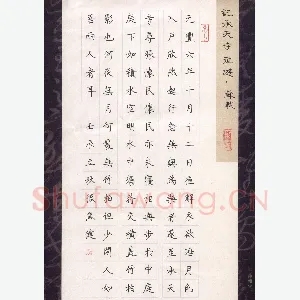 記承天寺夜遊·蘇軾
元豐六年十月十二日夜解衣欲睡月色
入戶欣然起行念無與為樂者遂至承天
寺尋張懷民懷民亦未寢相與步於中庭
庭下如積水空明水中藻荇交橫蓋竹柏
影也何夜無月何處無竹柏但少閒人如
吾兩人者耳 壬辰立秋
Shufawang.CN